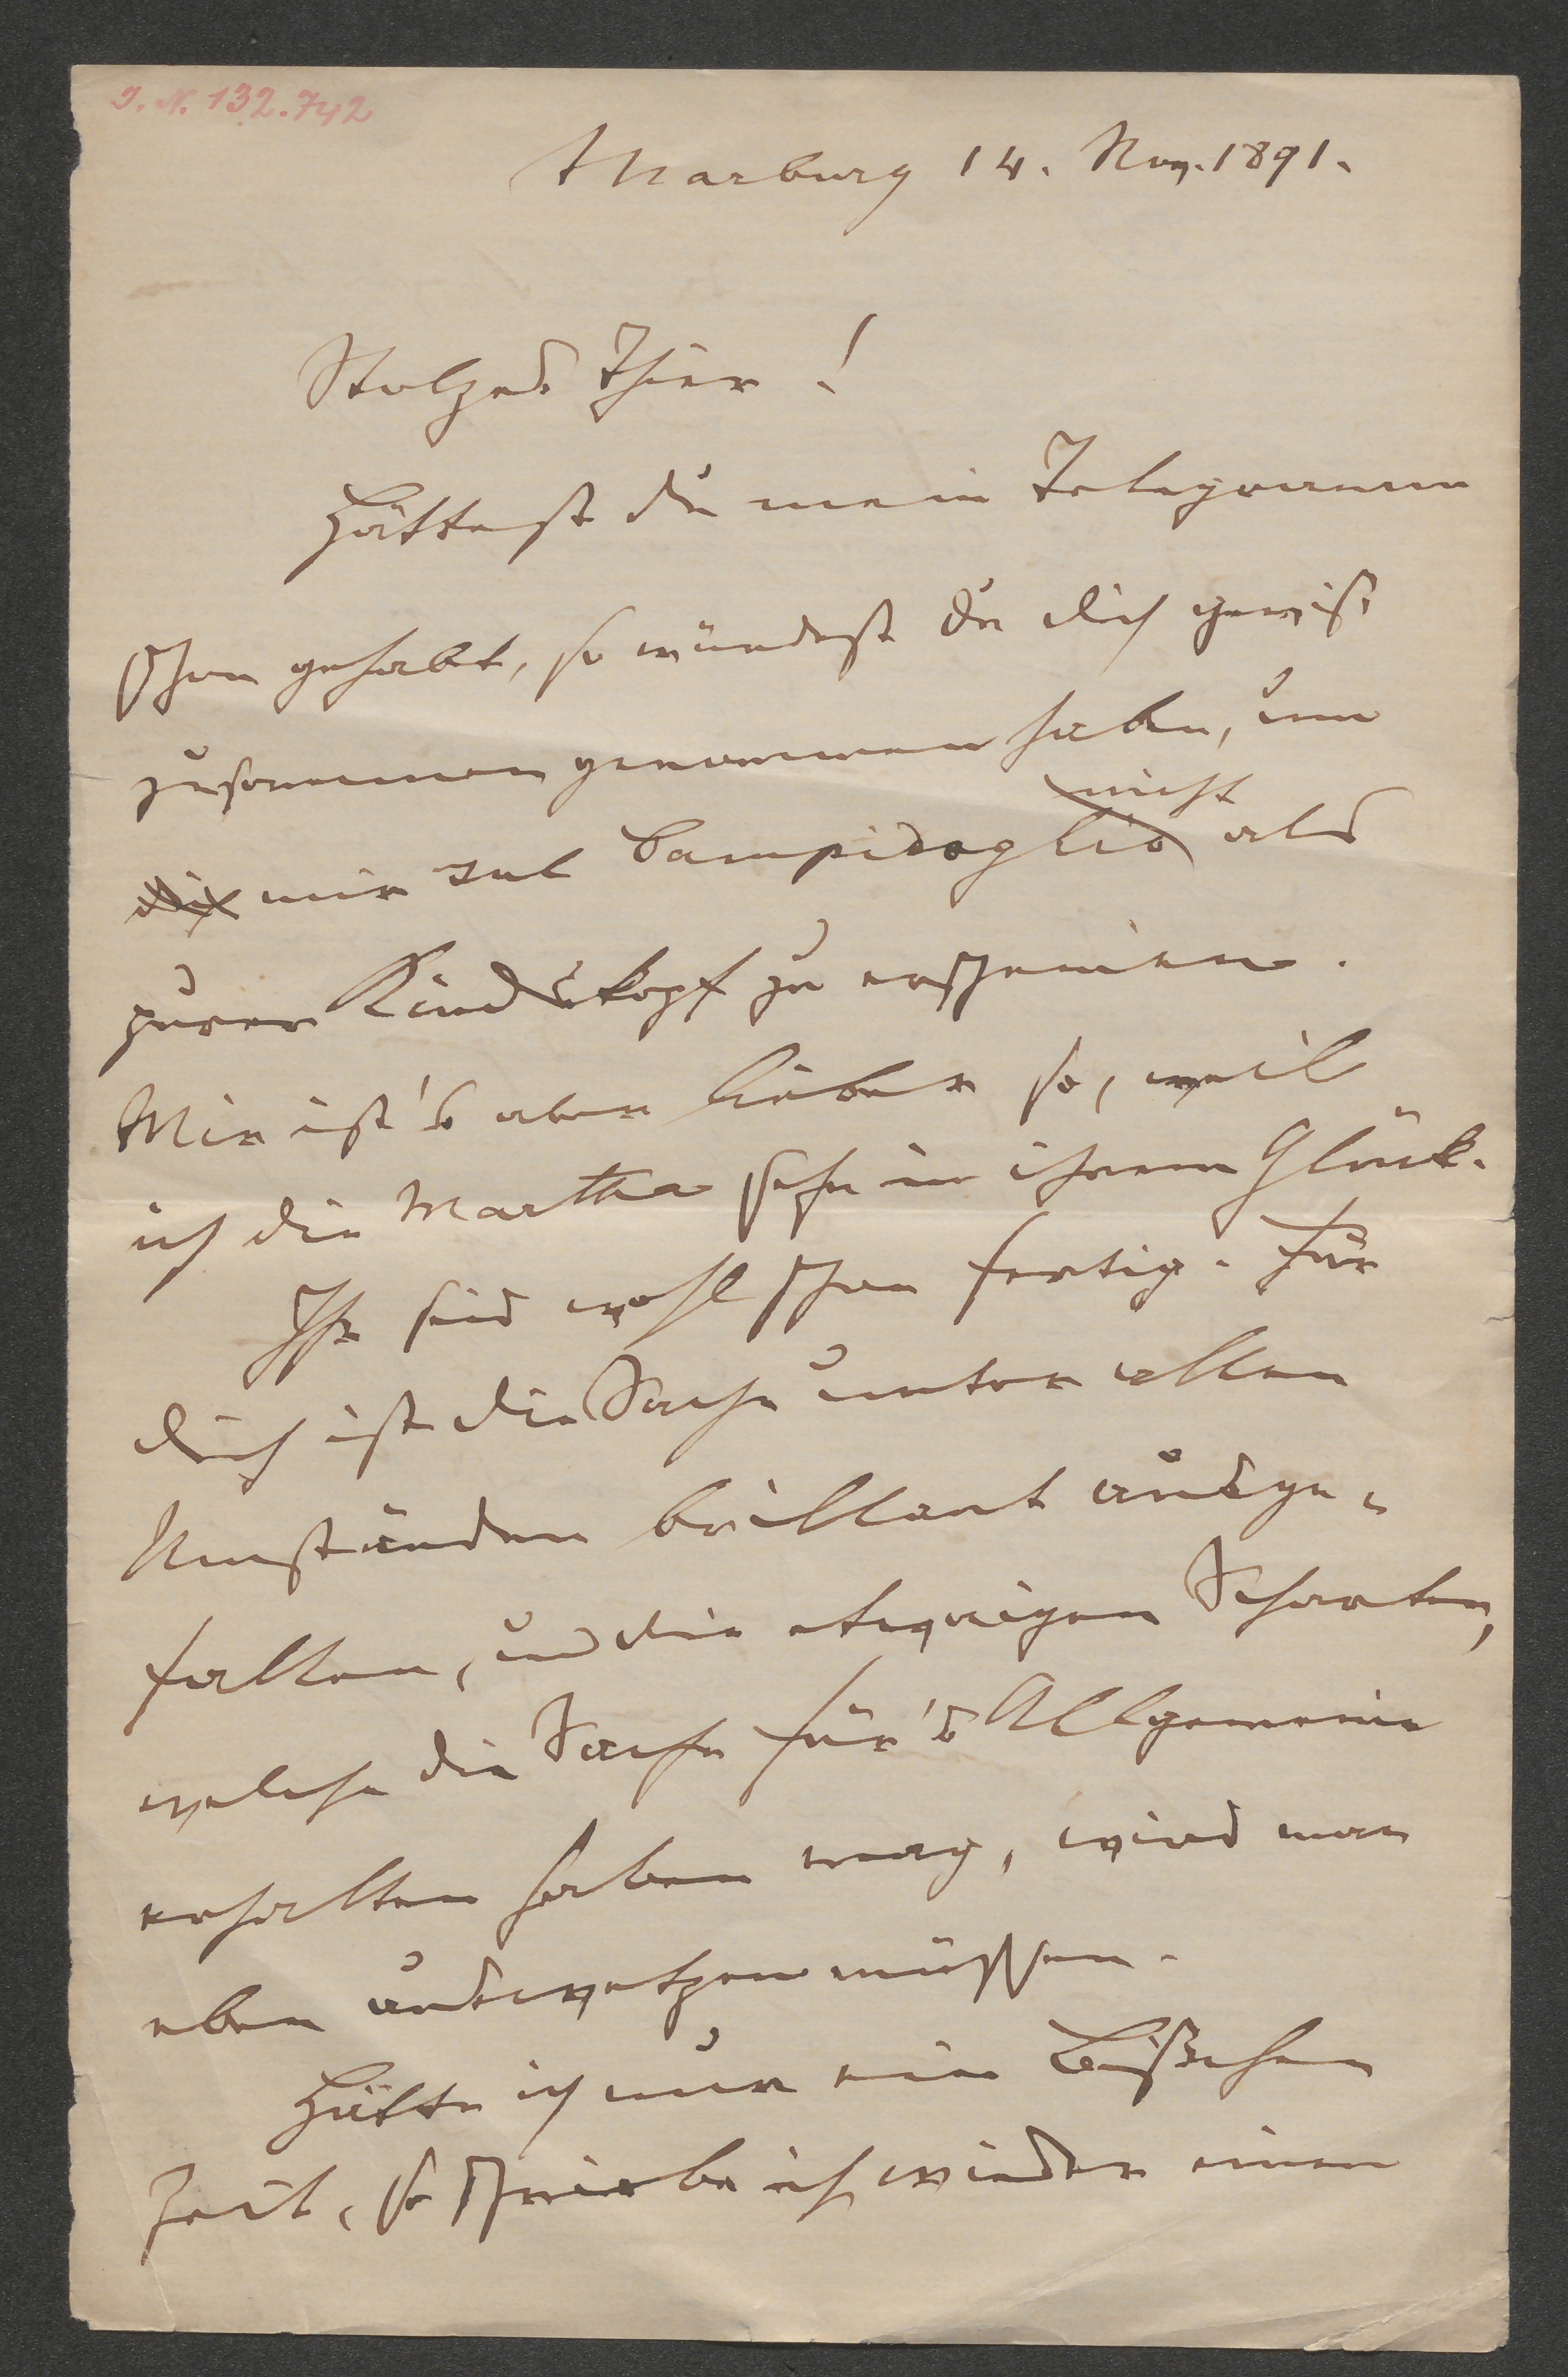 J. N. 132.742
Marburg 14. Nov. 1891.
Stolzes Thier!
Hättest du mein Telegramm
schon gehabt, so würdest du dich gewiß
zusammen genommen haben, um
nicht
mir sul Campidoglio als
purer Kindskopf zu erscheinen.
Mir ist's aber lieber so, weil
ich die Martha sehe in ihrem Glück.
Ihr seid wohl schon fertig. Für
dich ist die Sache unter allen
Umständen brillant ausge-
fallen, und die etwaigen Scharten,
welche die Sache für's Allgemeine
erhalten haben mag, wird man
eben auswetzen müssen.
Hätte ich nur ein Bißchen
Zeit, so schriebe ich wieder einen